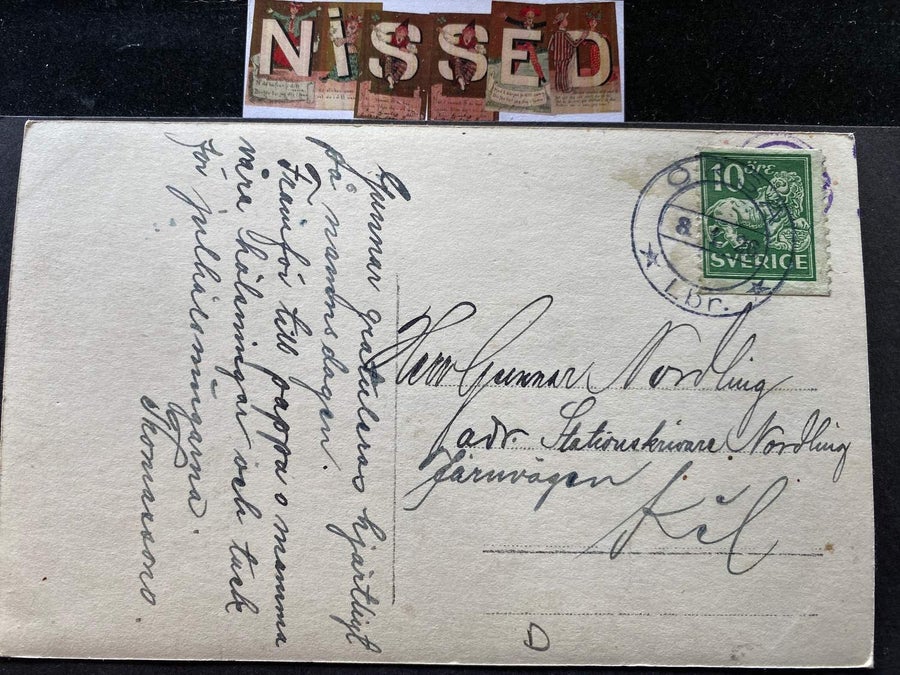 NISSED
Gunnar gratuleras hjärtligt
på namnsdagen.
Framför till pappa o mamma
våra hälsningar och tack
för julhälsningarna.
10 ÖRE
SVERIGE
8
LBR.
Herr Gunnar Nordling
adr. Stationskrivare Nordling
Järnvägen
Kil